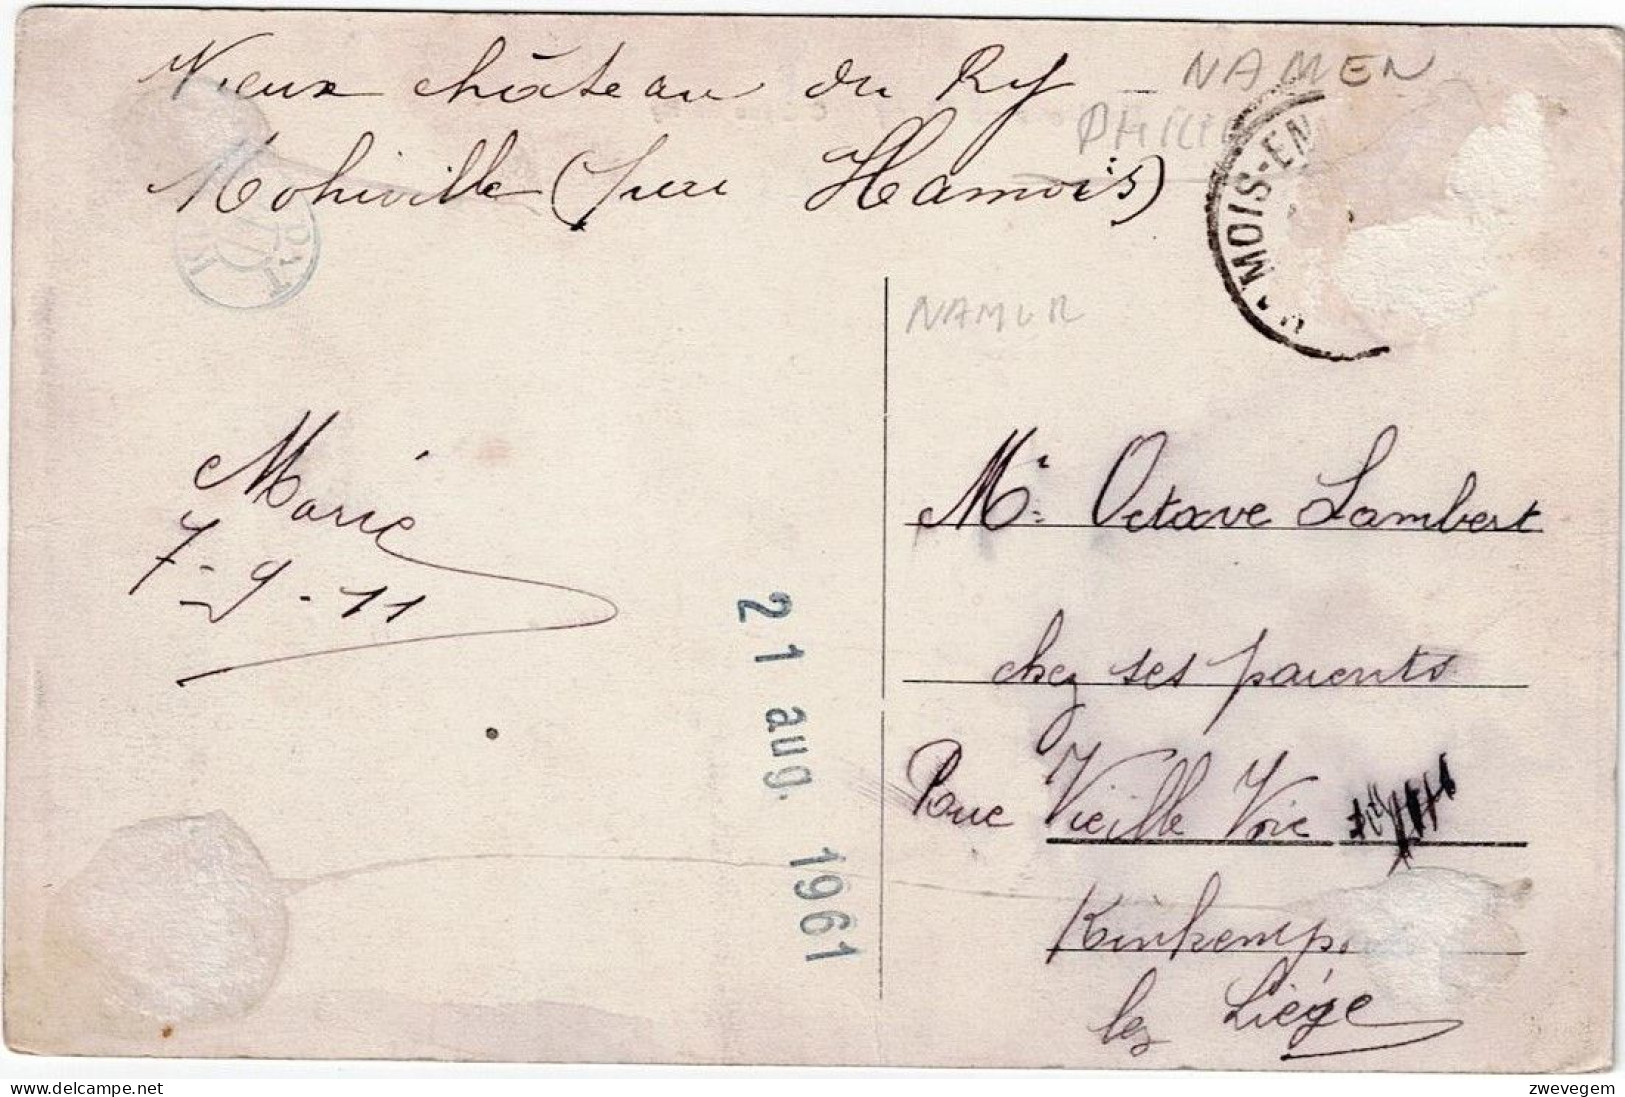 Vieux château du Ry
Mohiville (par Hamois)
NAMEN
MOIS-EN
NAMUR
Marie
7-9-11
21 aug. 1961
Mr Octave Lambert
chez ses parents
Rue Vieille Voie
Kinkemp
lez Liége
delcampe.net
zwevegem